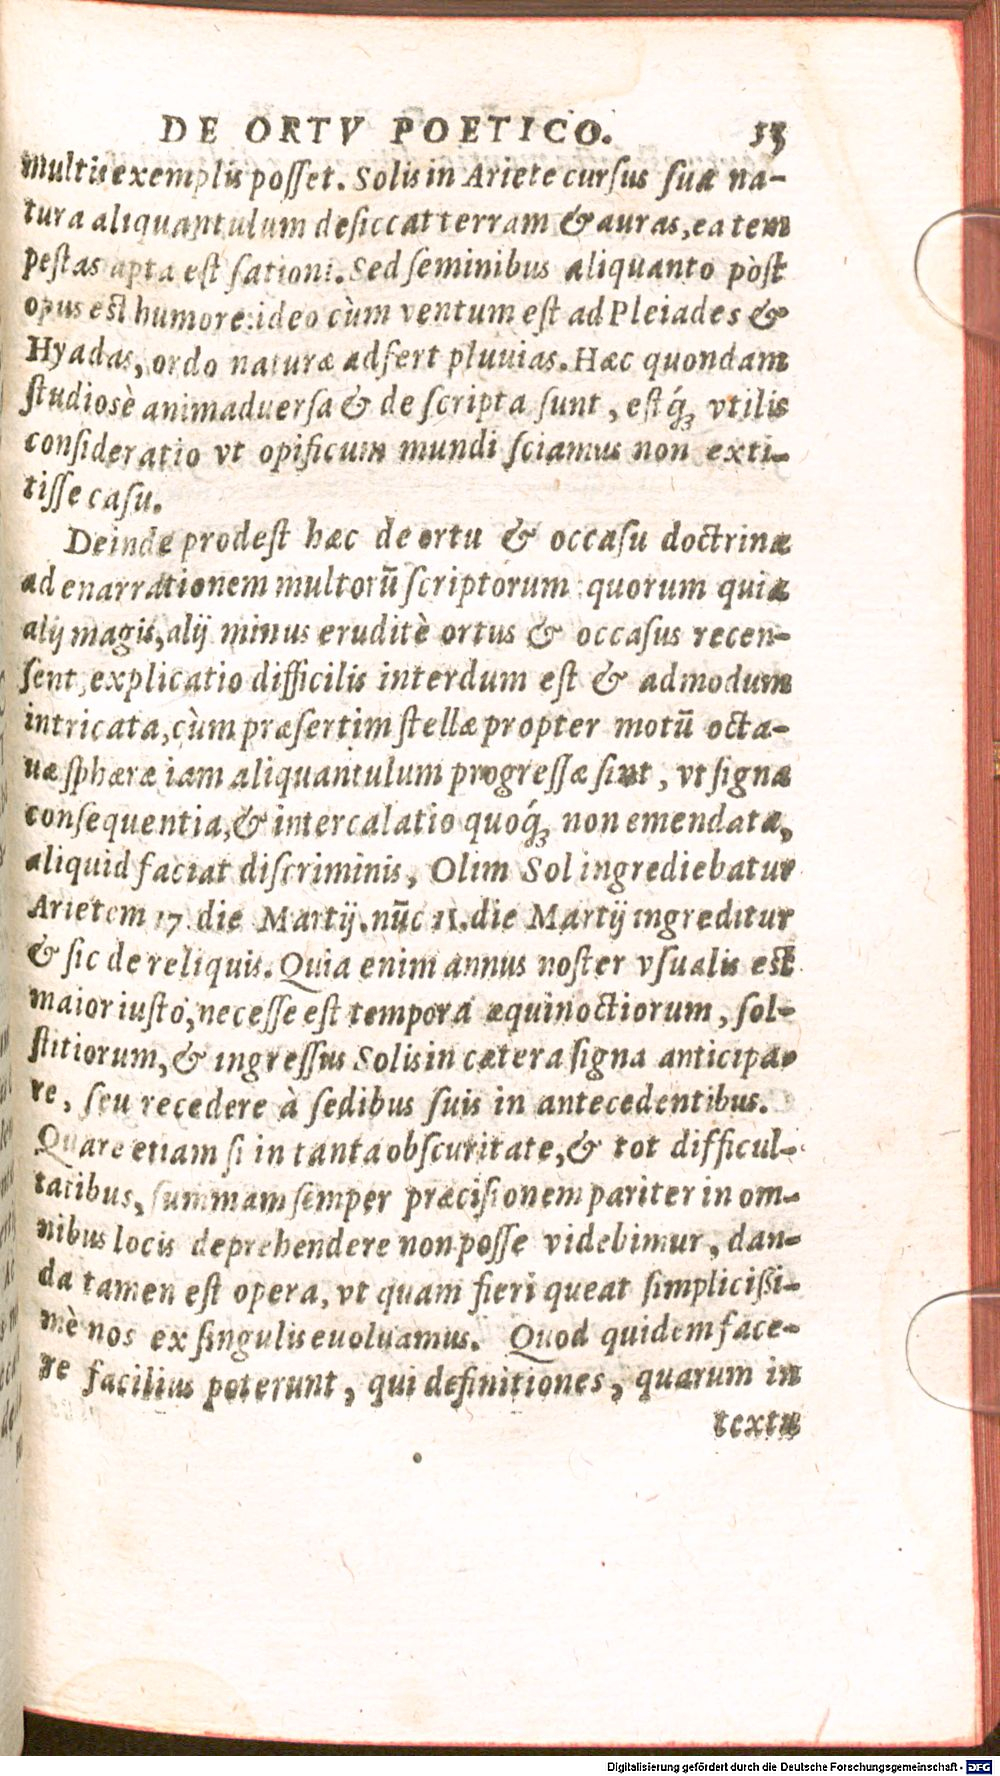 DE ORTV POETICO. 53
multis exemplis posſet. Solis in Ariete cursus ſua na-
tura aliquantulum desiccat terram & auras, ea tem
pestas apta est ſationi. Sed ſeminibus aliquanto pòst
opus est humore: ideo cùm ventum est ad Pleiades &
Hyadas, ordo naturæ adfert pluuias. Hæc quondam
ſtudiosè animaduerſa & de ſcripta ſunt, estq́ꝫ vtilis
conſideratio vt opificum mundi ſciamus non exti-
tiſſe caſu.
Deinde prodeſt hæc de ortu & occaſu doctrina
ad enarrationem multorũ ſcriptorum quorum quia
alij magis, alij minus eruditè ortus & occaſus recen-
ſent, explicatio difficilis interdum eſt & admodum
intricata, cùm præſertim ſtellæ propter motũ octa-
uæ ſphæræ iam aliquantulum progreſſæ ſint, vt ſigna
conſequentia, & intercalatio quoq́ꝫ non emendata,
aliquid faciat diſcriminis, Olim Sol ingrediebatur
Arietem 17 die Martij. nũc 11. die Martij ingreditur
& ſic de reliquis. Quia enim annus noſter vſualis est
maior iuſto, neceſſe eſt tempora æquinoctiorum, ſol-
ſtitiorum, & ingreſſus Solis in cætera ſigna anticipa-
re, ſeu recedere à ſedibus ſuis in antecedentibus.
Quare etiam ſi in tanta obſcuritate, & tot difficul-
tatibus, ſummam ſemper præciſionem pariter in om-
nibus locis deprehendere non poſſe videbimur, dan-
da tamen eſt opera, vt quam fieri queat ſimpliciſsi-
mè nos ex ſingulis euoluamus. Quod quidem face-
re facilius poterunt, qui definitiones, quarum in
textu
Digitalisierung gefördert durch die Deutsche Forschungsgemeinschaft - DFG